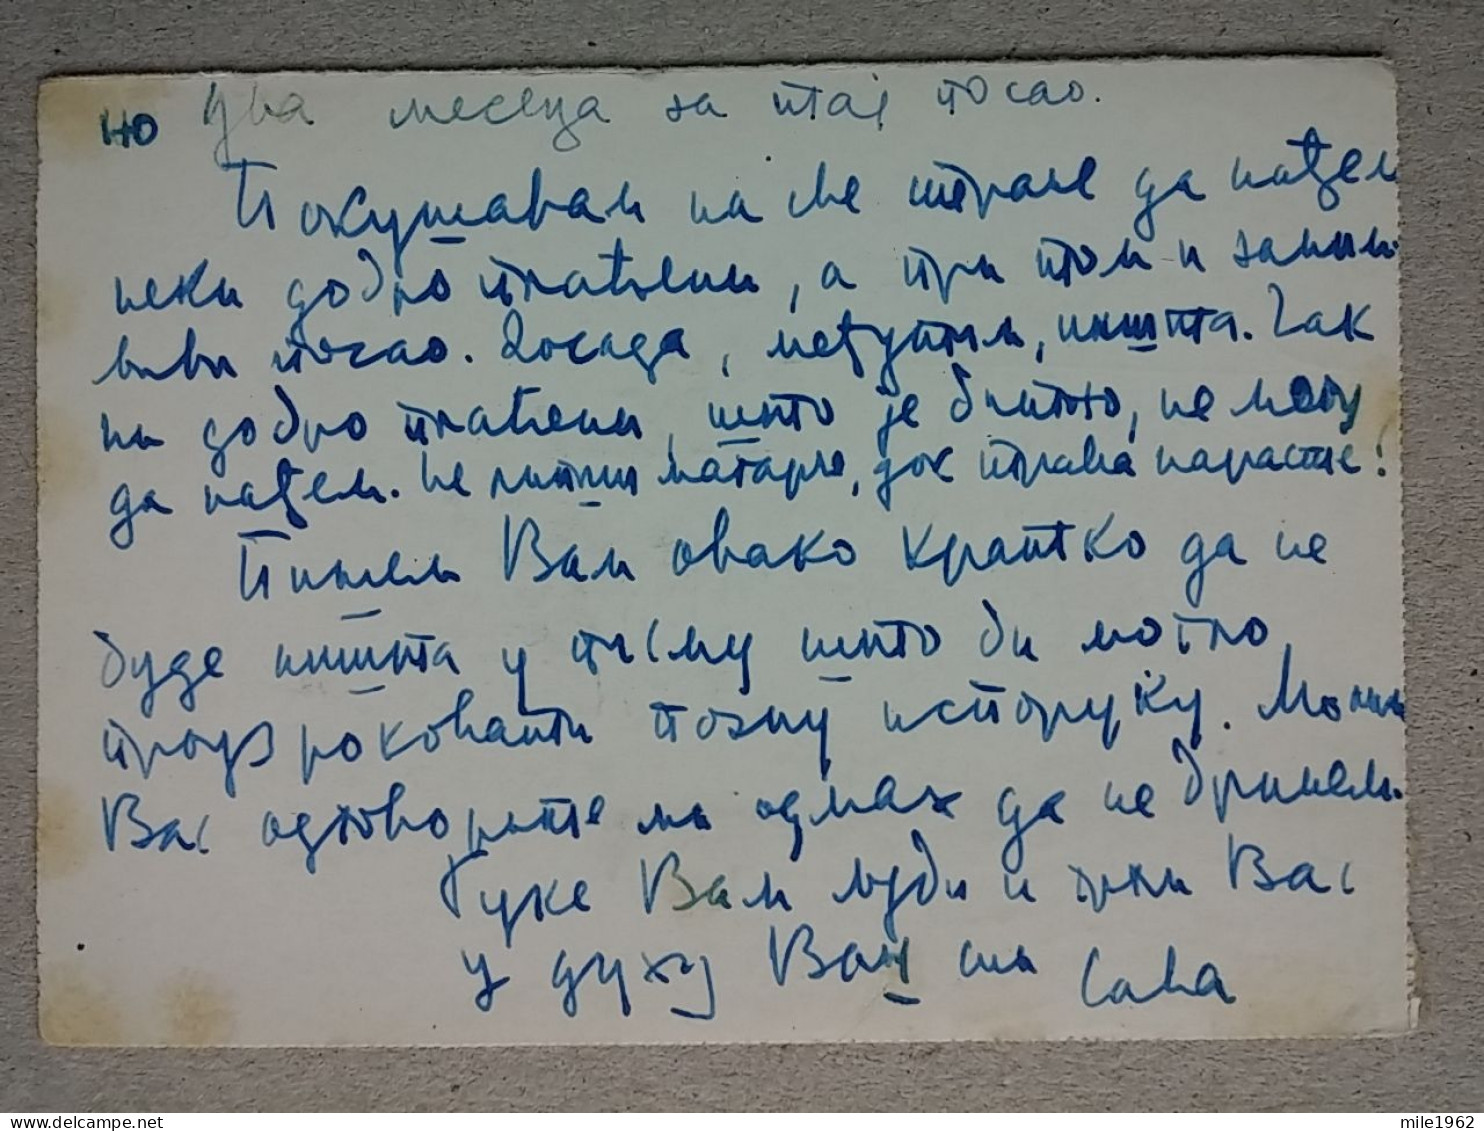 но два месеца за тај посао.
Покушавам на све стране да нађем
неки добро плаћени, а при том и заним-
љиви посао. Досада, међутим, ништа. Чак
ни добро плаћени, што је битно, не могу
да нађем. Не липши магарче, док трава нарасте!
Пишем Вам овако кратко да не
буде ништа у писму што би могло
проузроковати позну испоруку. Молим
Вас одговорите ми одмах да не бринем.
Руке Вам љуби и грли Вас
у духу Ваш син Сава
mile1962